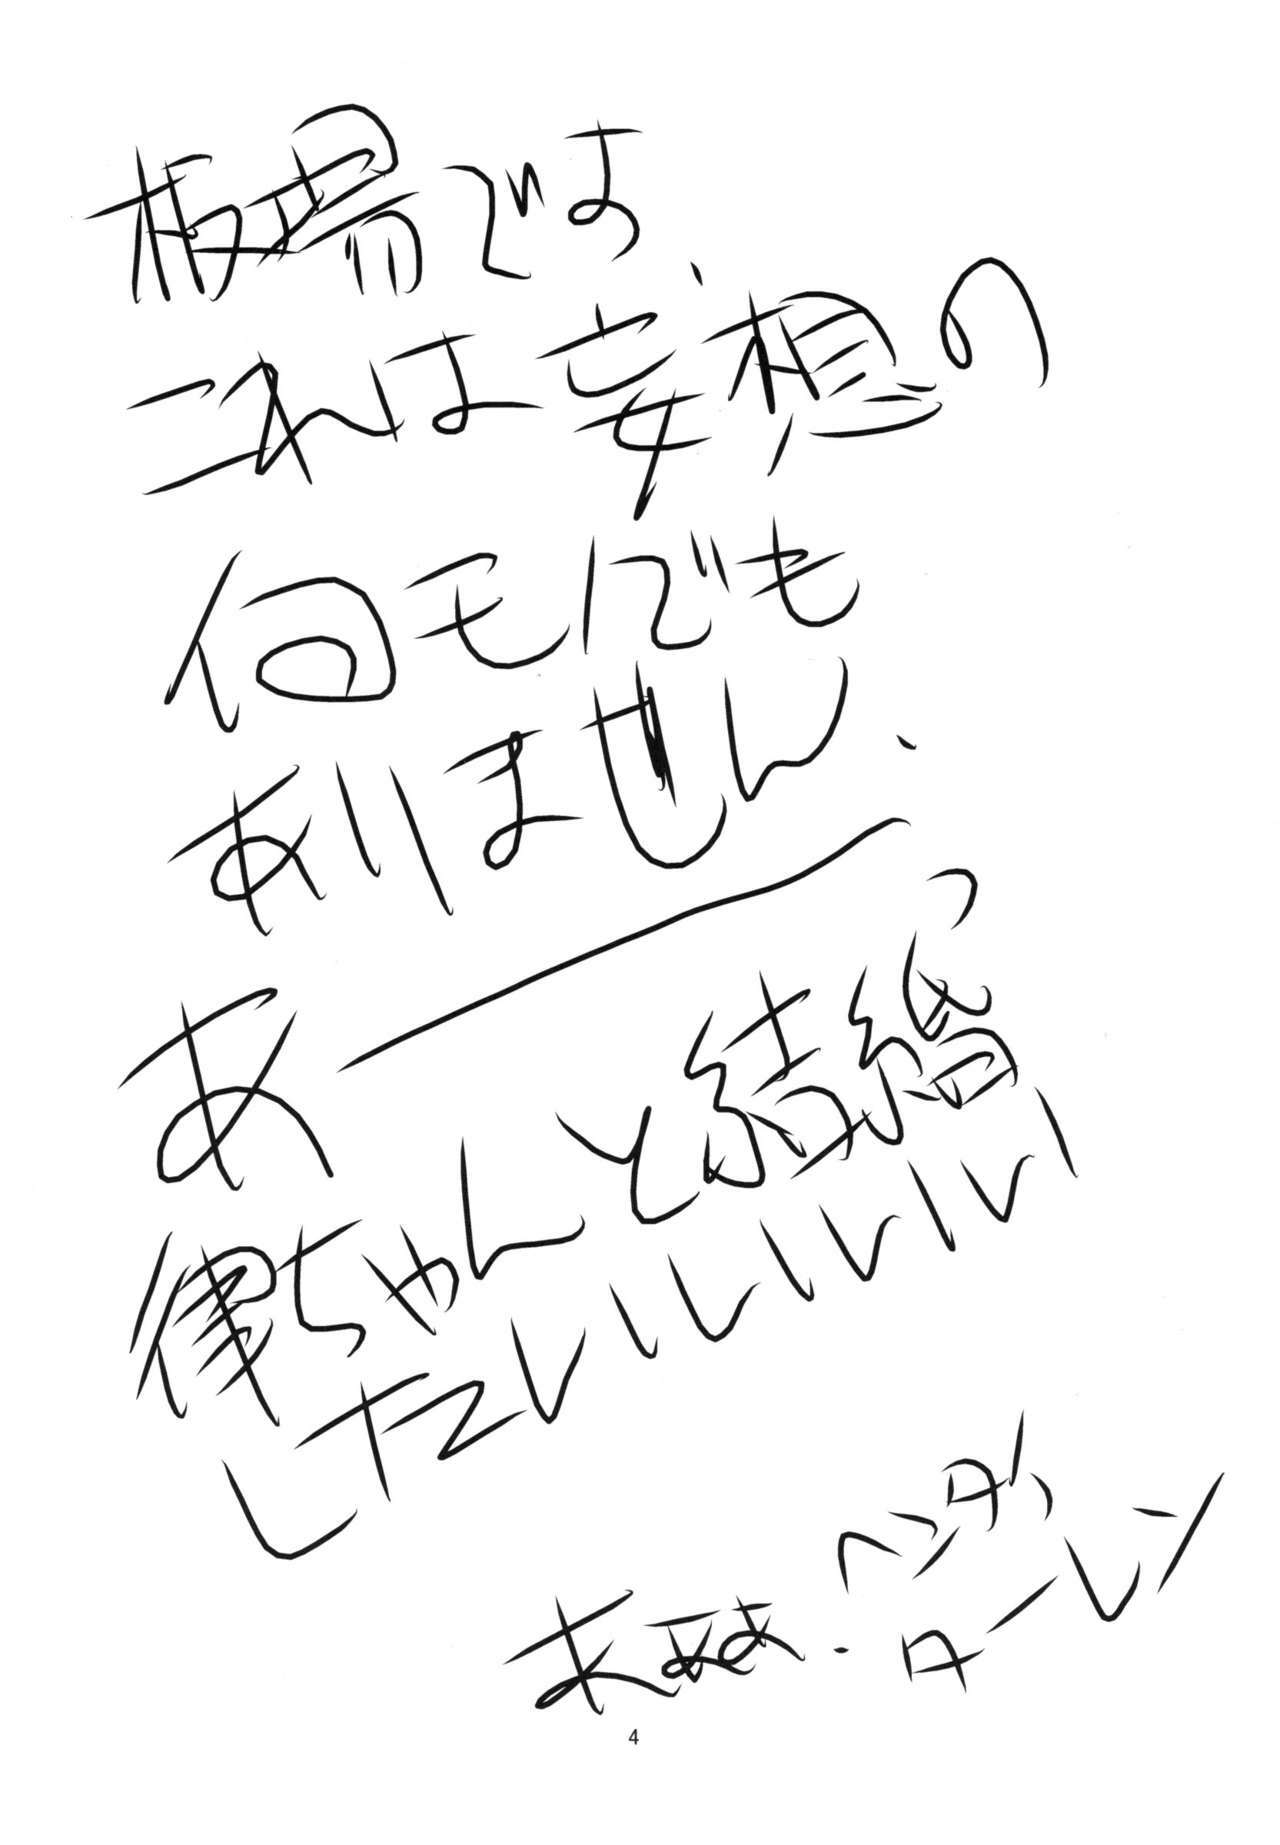 板場でよ、
これは妄想の
何モノでも
ありません.
あーっ
律ちゃんと結婚
したいいいいいいい
まぁぁ.
ヘンダ
ターレン
4